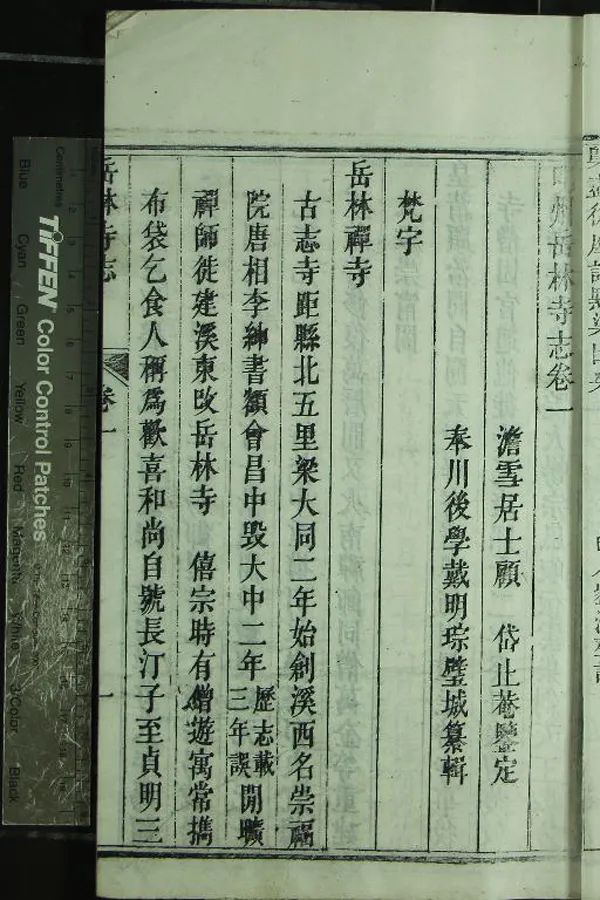 州岳林寺志卷一
澹雪居士顧 岱止菴鑒定
奉川後學戴明琮璧城纂輯
梵宇
岳林禪寺
古志寺距縣北五里梁大同二年始創溪西名崇福
院唐相李紳書額會昌中毀大中二年歷志載三年誤閒曠
禪師徙建溪東改岳林寺 僖宗時有僧遊寓常攜
布袋乞食人稱爲歡喜和尚自號長汀子至貞明三
岳林寺志 卷一 一
Centimetres
TIFFEN Color Control Patches
Blue Cyan Green Yellow Red Magenta White 3/Color Black